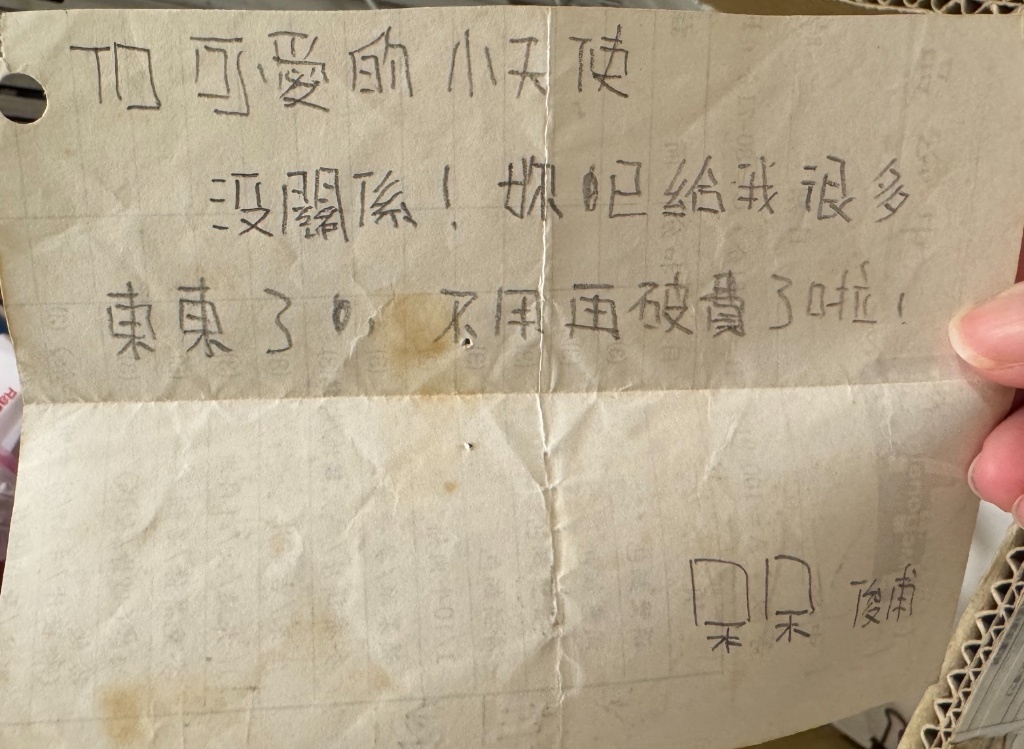 TO 可愛的小天使
沒關係！妳已給我很多
東東了，不用再破費了啦！
呆呆 俊甫